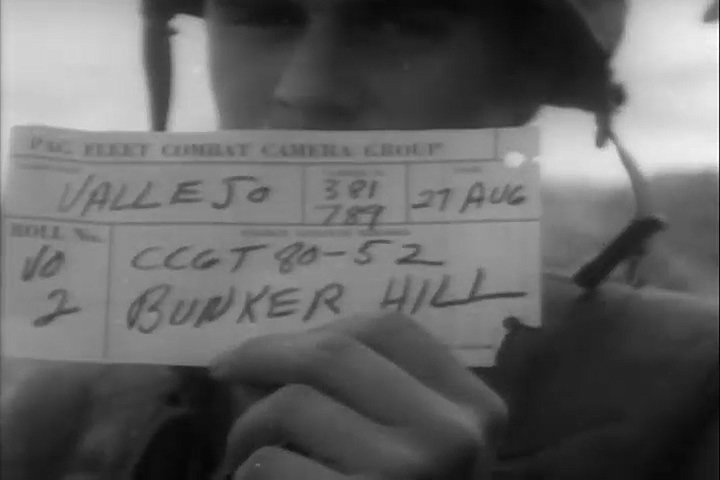 PAC. FLEET COMBAT CAMERA GROUP
VALLEJO 381 27 AUG
789
ROLL No.
VO CCGT 80-52
2 BUNKER HILL